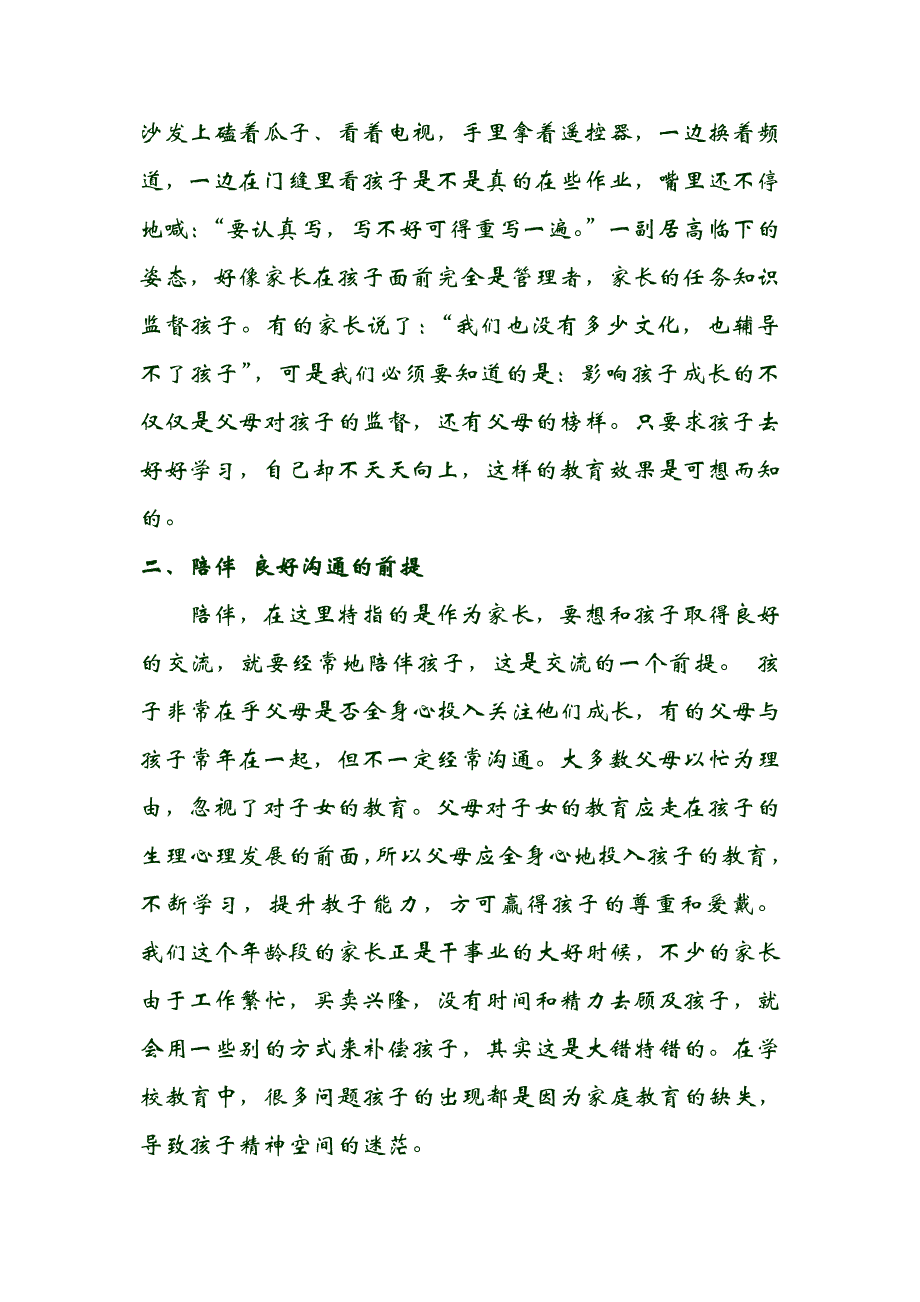 沙发上磕着瓜子、看着电视，手里拿着遥控器，一边换着频
道，一边在门缝里看孩子是不是真的在些作业，嘴里还不停
地喊：“要认真写，写不好可得重写一遍。”一副居高临下的
姿态，好像家长在孩子面前完全是管理者，家长的任务知识
监督孩子。有的家长说了：“我们也没有多少文化，也辅导
不了孩子”，可是我们必须要知道的是：影响孩子成长的不
仅仅是父母对孩子的监督，还有父母的榜样。只要求孩子去
好好学习，自己却不天天向上，这样的教育效果是可想而知
的。
二、陪伴 良好沟通的前提
陪伴，在这里特指的是作为家长，要想和孩子取得良好
的交流，就要经常地陪伴孩子，这是交流的一个前提。 孩
子非常在乎父母是否全身心投入关注他们成长，有的父母与
孩子常年在一起，但不一定经常沟通。大多数父母以忙为理
由，忽视了对子女的教育。父母对子女的教育应走在孩子的
生理心理发展的前面，所以父母应全身心地投入孩子的教育，
不断学习，提升教子能力，方可赢得孩子的尊重和爱戴。
我们这个年龄段的家长正是干事业的大好时候，不少的家长
由于工作繁忙，买卖兴隆，没有时间和精力去顾及孩子，就
会用一些别的方式来补偿孩子，其实这是大错特错的。在学
校教育中，很多问题孩子的出现都是因为家庭教育的缺失，
导致孩子精神空间的迷茫。